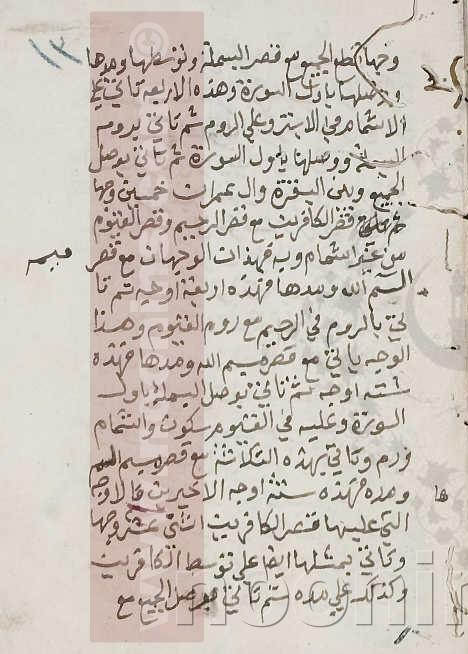 ١٣
وجها قطع الجميع مع قصر البسملة وتوسطها ومدها
ووصلها باول السورة وهذه الاربعة تاتي علي
الاشمام وفي الابتر وعلي الروم ثم تاتي بروم
البسملة ووصلها باول السورة ثم تاتي بوصل
الجميع وبين البقرة وال عمران خمسين وجها
قصر الكافرين مع قصر الرحيم وقصر القيوم
من غير اشمام وبه فهذان الوجهان مع قصر
ميم
الم الله ومدها فهذه اربعة اوجه ثم تا
تي بالروم في الرحيم مع روم القيوم وهذا
الوجه ياتي مع قصر ميم الله ومدها فهذه
ستة اوجه ثم تاتي بوصل البسملة باول
السورة وعليه في القيوم سكون واشمام
وروم وتاتي بهذه الثلاثة مع قصر ميم الم
ومده فهذه ستة اوجه الاخيرين فالاوجه
ها
التي عليها قصر الكافرين اثني عشر وجها
وتاتي بمثلها ايضا علي توسط الكافرين
وكذلك علي مده ثم تاتي بوصل الجميع مع
noor